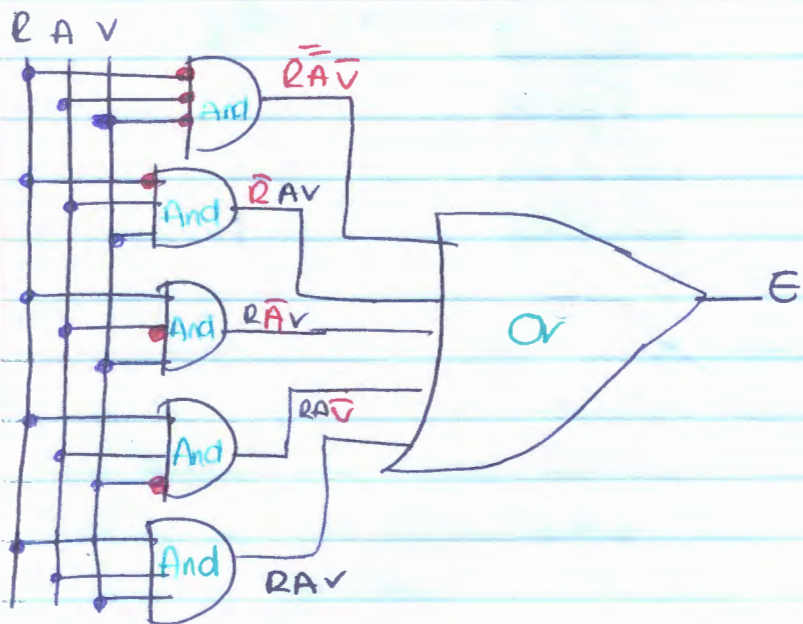 R A V
And
R̅ A̅ V̅
And
R̅ A V
And
R A̅ V
Or
E
And
R A V̅
And
R A V